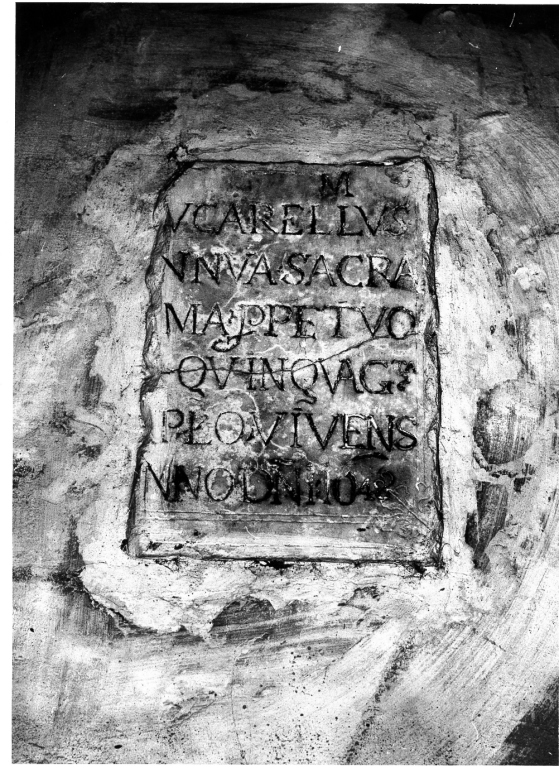 M
VCARELLVS
VNVA SACRA
MA PPETVO
QVINQVAG
PLO VIVENS
NNO DÑI 1048